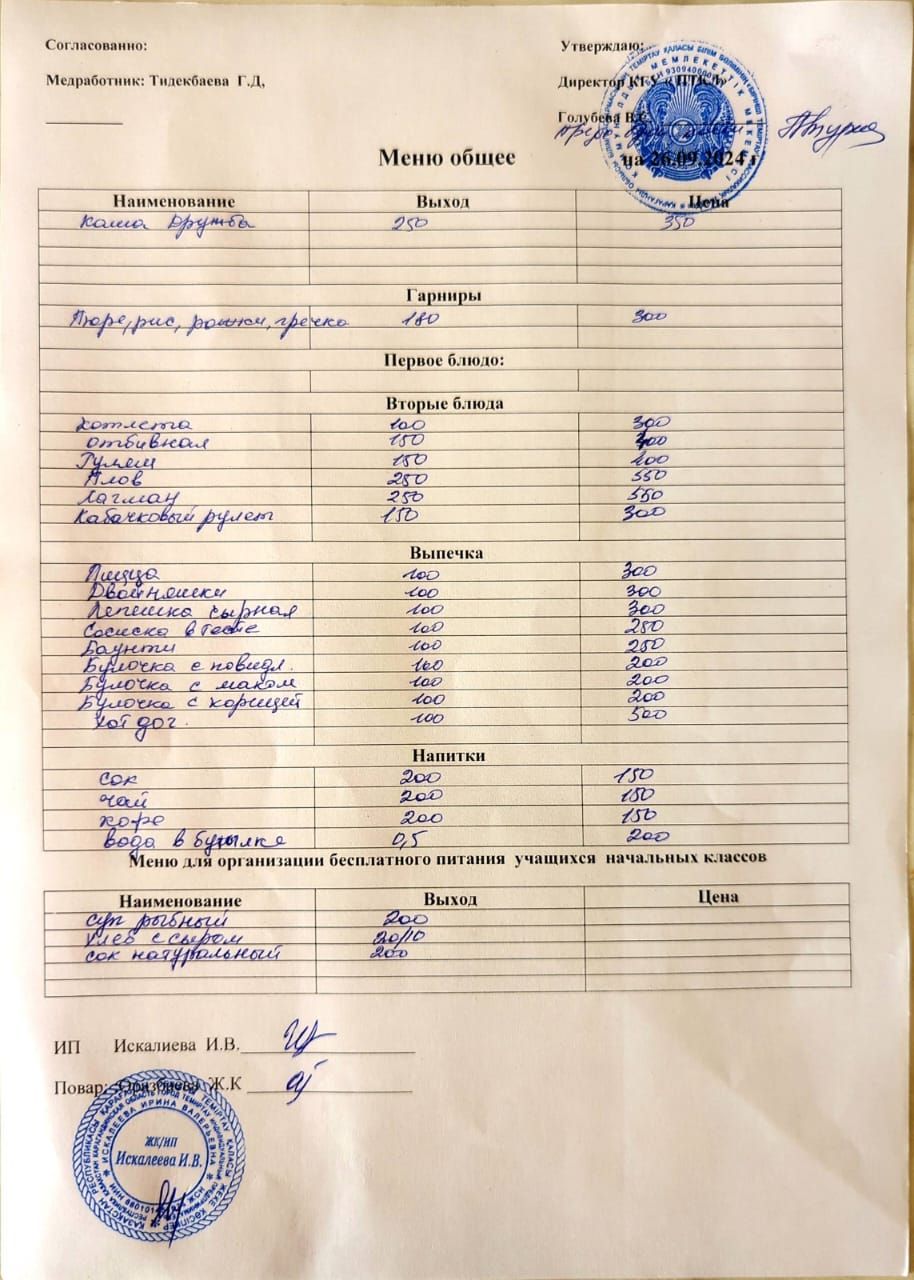 Согласованно:
Утверждаю:
Медработник: Тидекбаева Г.Д,
Директор КГУ « ПТКЛ»
Голубева В.С.
Меню общее
на 26.09.2024 г
Наименование Выход Цена
Каша Дружба 250 350
Гарниры
Пюре, рис, рожки, гречка 180 300
Первое блюдо:
Вторые блюда
Котлета 100 300
отбивная 150 400
Гуляш 150 400
Плов 250 550
Лагман 250 550
Кабачковый рулет 150 300
Выпечка
Пицца 100 300
Двойняшки 100 300
Лепешка сырная 100 300
Сосиска в тесте 100 250
Баунти 100 250
Булочка с повидл. 100 200
Булочка с маком 100 200
Булочка с корицей 100 200
Хот дог. 100 500
Напитки
Сок 200 150
чай 200 150
кофе 200 150
вода в бутылке 0,5 200
Меню для организации бесплатного питания учащихся начальных классов
Наименование Выход Цена
суп рыбный 200
хлеб с сыром 20/10
сок натуральный 200
ИП Искалиева И.В.
Повар: Оразбаева Ж.К
ЖК/ИП
Искалеева И.В.
ИСКАЛЕЕВА ИРИНА ВАЛЕРЬЕВНА